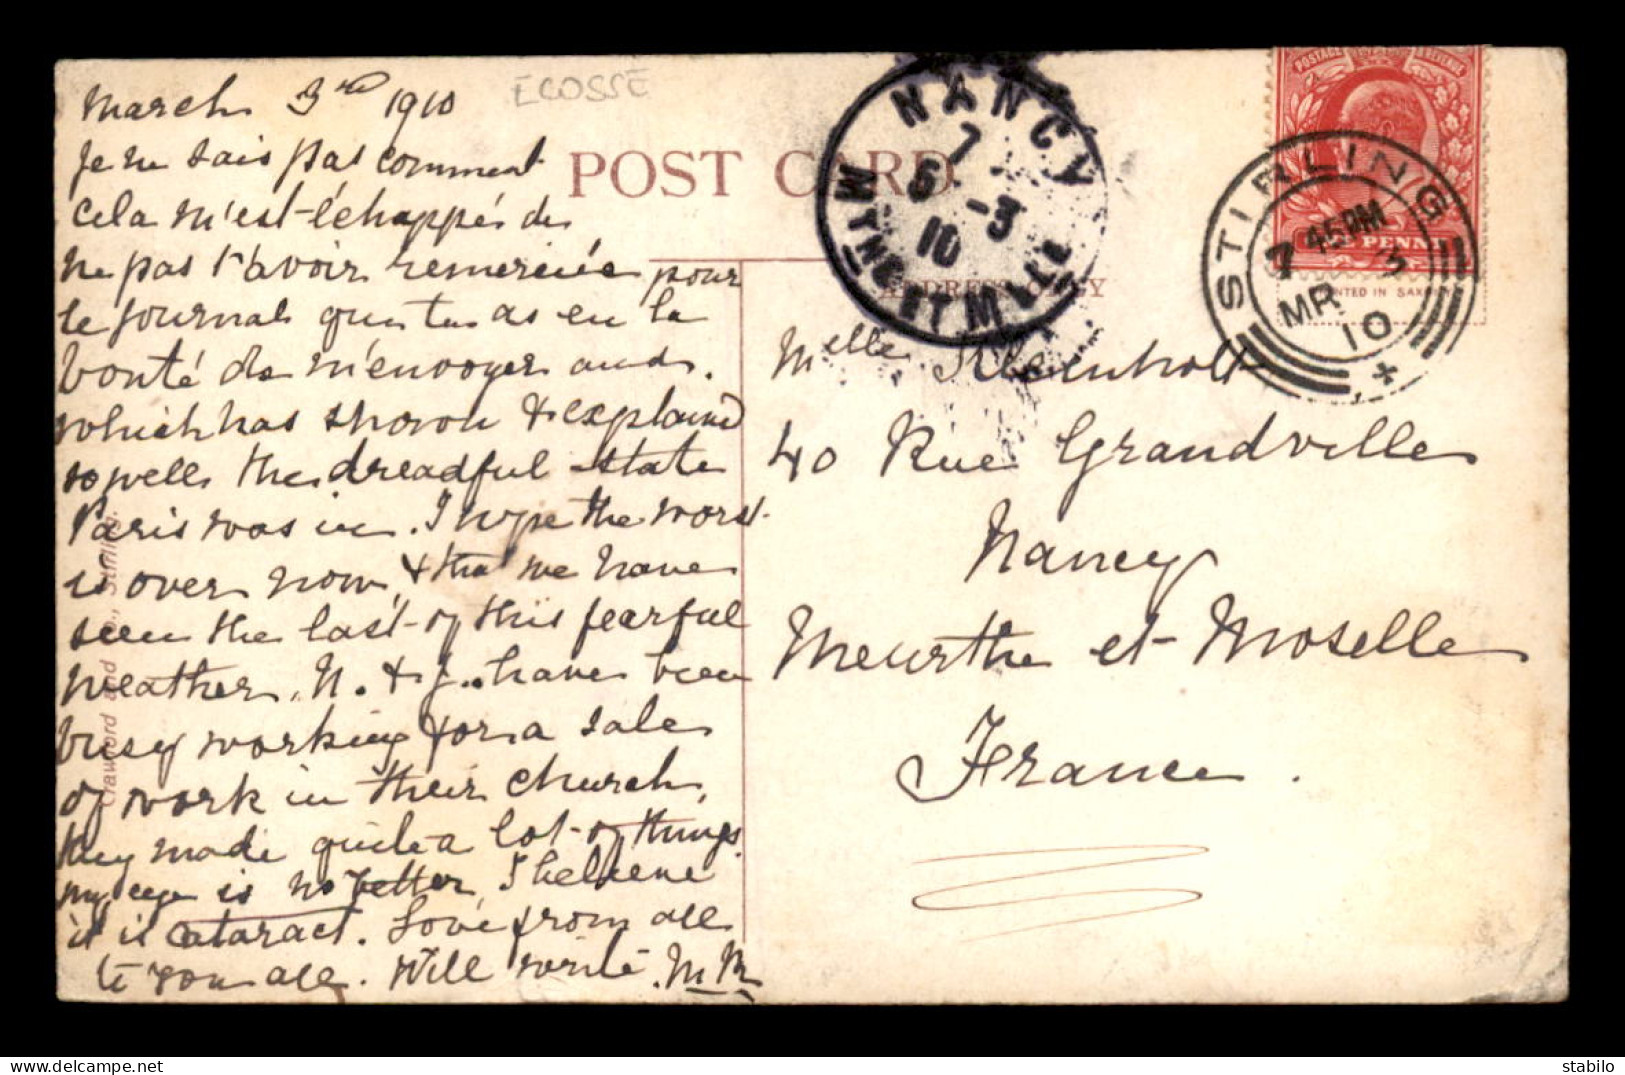 March 3rd 1910
ECOSSE
Je ne sais pas comment
cela m'est échappée de
ne pas t'avoir remerciée pour
le journal que tu as eu la
bonté de m'envoyer and
which has shown & explained
so well the dreadful state
Paris was in. I hope the worst
is over now, & that we have
seen the last of this fearful
weather. N. & J. have been
busy working for a sale
of work in their church,
they made quite a lot of things.
my eye is no better, I believe
it is cataract. Love from all
to you all. Will write. M M
Crawford and Co., Stirling.
POST CARD
ADDRESS ONLY
NANCY
7
6 -3
10
MTHE ET MLLE
POSTAGE & REVENUE
ONE PENNY
PRINTED IN SAXONY
STIRLING
7 45PM
MR 3
10
Melle
40 Rue Grandville
Nancy
Meurthe et Moselle
France.
stabylo